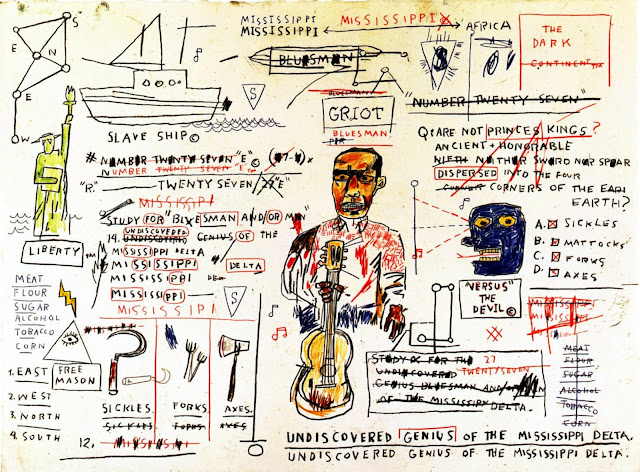 S
E
N
E
W
MISSISSIPPI
MISSISSIPPI
MISSISSIPPI
AFRICA
THE
DARK
CONTINENT
BLUESMAN
S
BLUESMAN
GRIOT
BLUESMAN
"NUMBER TWENTY SEVEN"
SLAVE SHIP©
# NUMBER TWENTY SEVEN "E"©
NUMBER TWENTY SEVEN "E"
"R."
TWENTY SEVEN "E"
MISSISSIPPI
STUDY FOR "BLUESMAN AND/OR MAN"
UNDISCOVERED
14. UNDISCOVERED GENIUS OF THE
MISSISSIPPI DELTA
MISSISSIPPI DELTA
MISSISSIPPI DEL
MISSISSIPPI
MISSISSIPPI
S
Q: ARE NOT PRINCES KINGS?
ANCIENT + HONORABLE
NIETH NAITHER SWORD NOR SPEAR
DISPERSED INTO THE FOUR
CORNERS OF THE EARL
EARTH?
A. SICKLES
B. MATTOCKS
C. FORKS
D. AXES
LIBERTY™
MEAT
FLOUR
SUGAR
ALCOHOL
TOBACCO
CORN
FREE
MASON
1. EAST
2. WEST
3. NORTH
4. SOUTH
SICKLES.
SICKLES
FORKS.
FORKS.
AXES.
AXES.
12. MISSISSIPPI
"VERSUS" THE
DEVIL©
MISSISSIPPI
MISSISSIPPI
MEAT
FLOUR
SUGAR
ALCOHOL
TOBACCO
CORN
STUDY FOR THE 27
UNDISCOVERED TWENTYSEVEN
GENIUS BLUESMAN AND/OR
OF THE MISSISSIPPI DELTA.
UNDISCOVERED GENIUS OF THE MISSISSIPPI DELTA.
UNDISCOVERED GENIUS OF THE MISSISSIPPI DELTA.